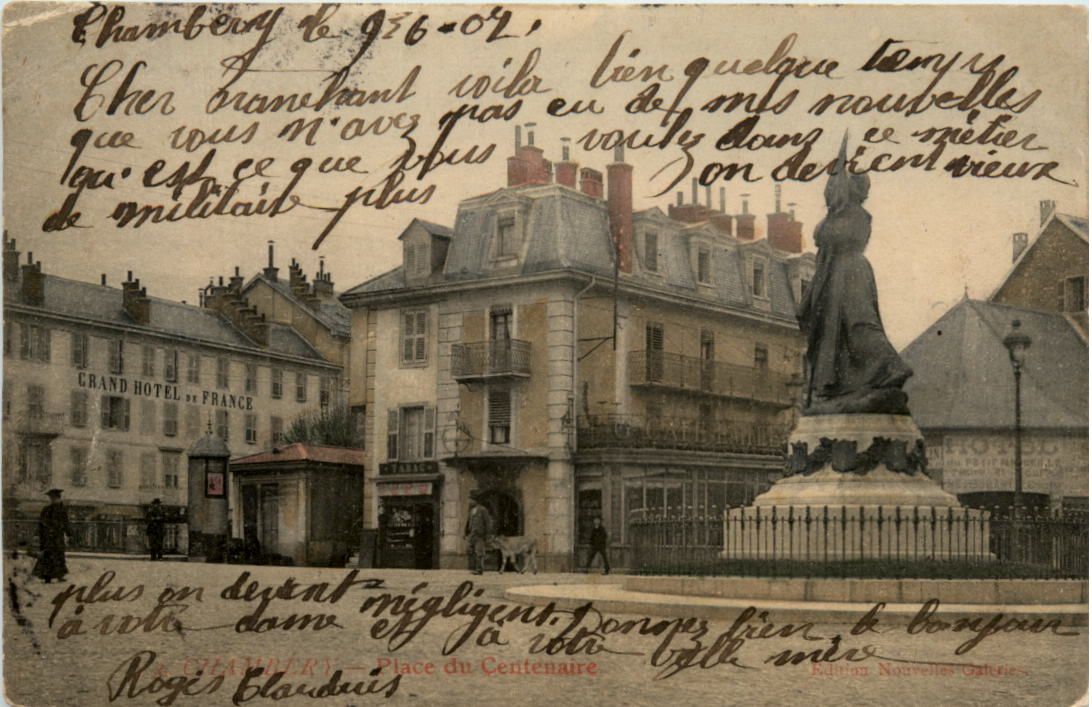 Chambery le 9-6-07.
Cher marchant voila bien quelque temps
que vous n'avez pas eu de mes nouvelles
qu'est ce que vous voulez dans ce métier
de militaire plus on devient vieux
GRAND HOTEL DE FRANCE
TABAC
HOTEL
plus on devient négligent. Donnez bien le bonjour
à votre dame et à votre belle mère
CHAMBERY — Place du Centenaire
Edition Nouvelles Galeries.
Roges Claudius